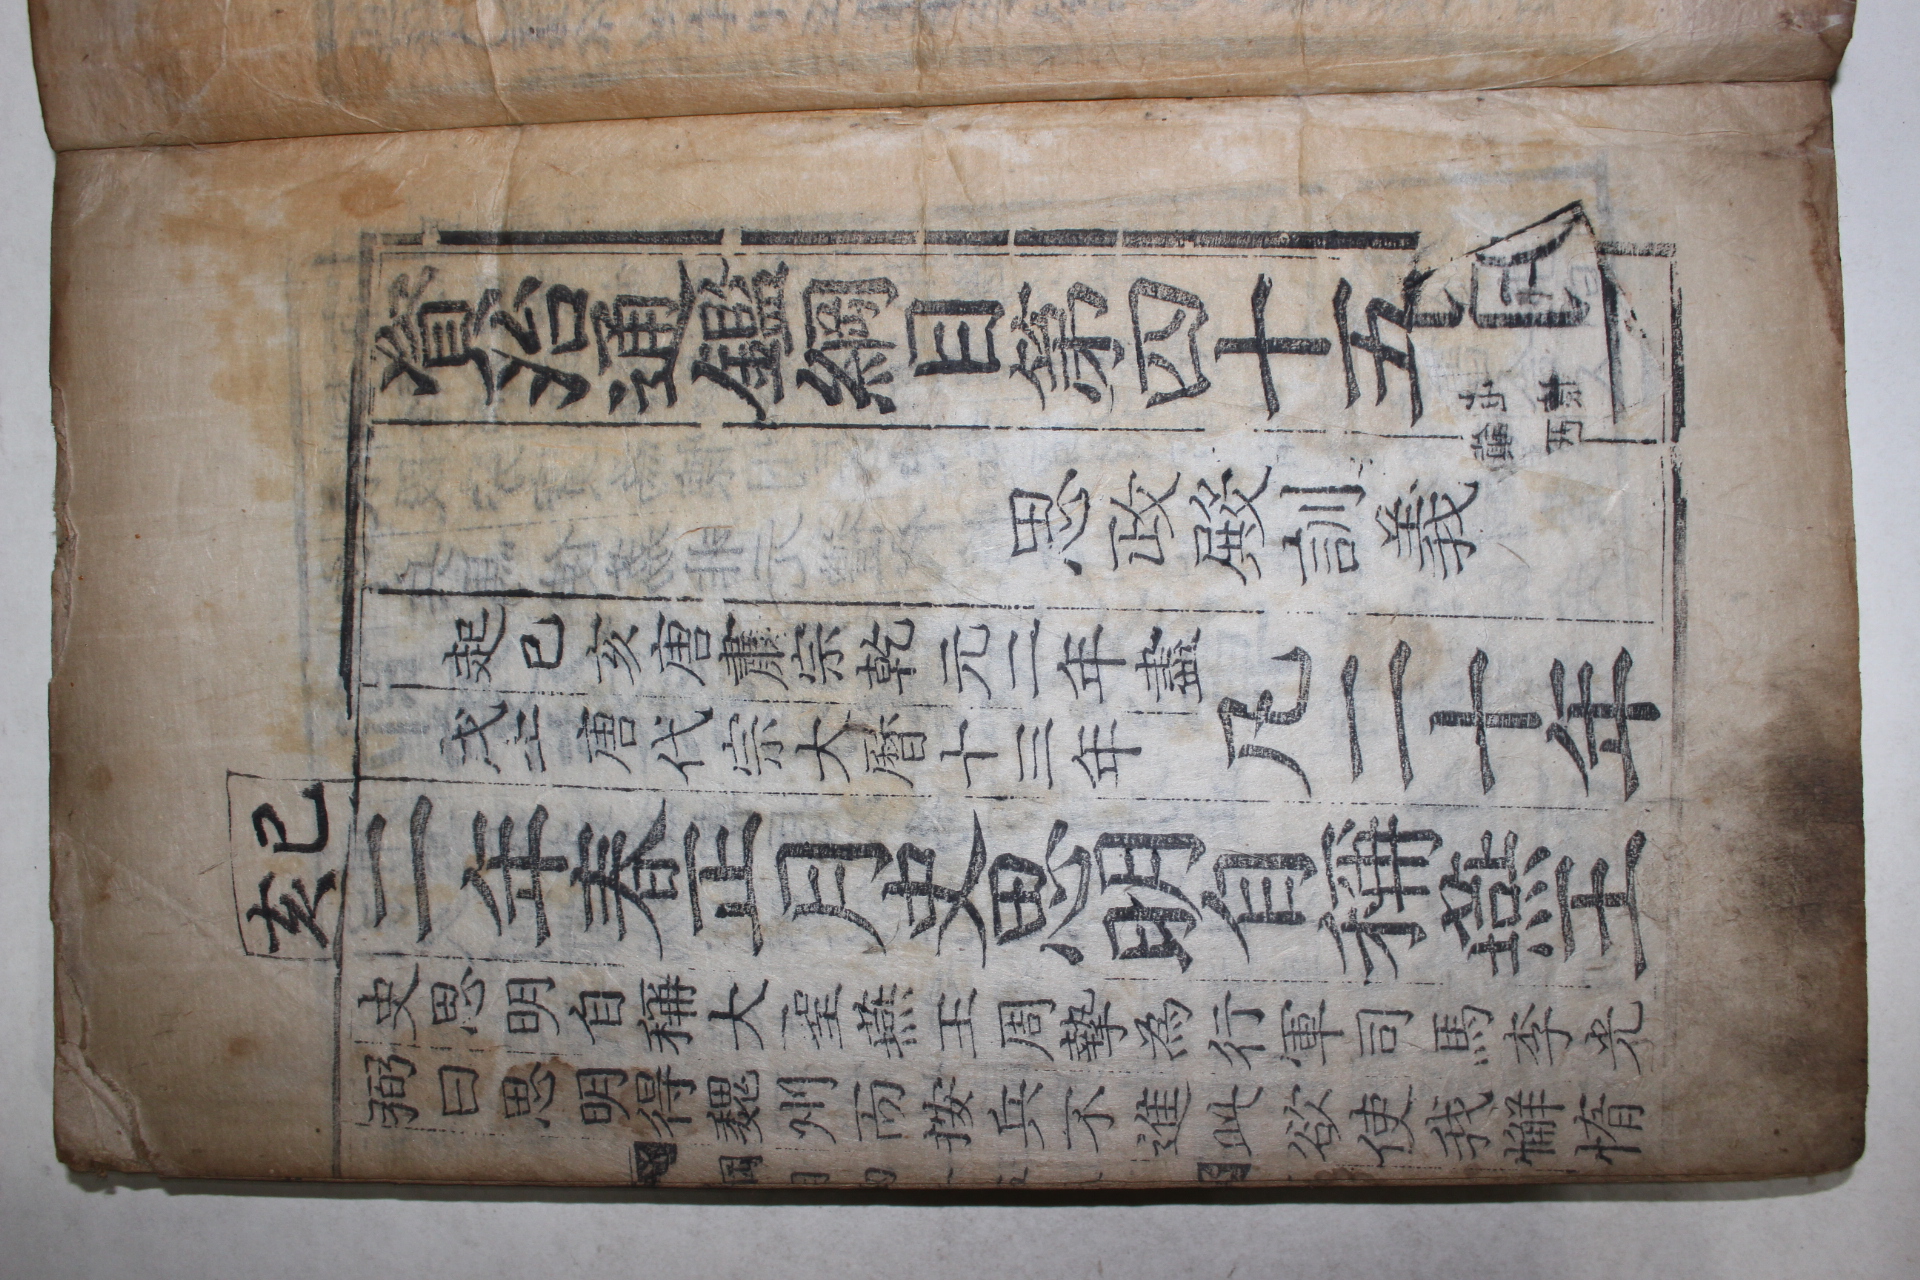 資治通鑑綱目第四十五上
思政殿訓義
起己亥唐肅宗乾元二年盡
戊午唐代宗大曆十三年
凡二十年
己亥
二年春正月史思明自稱燕王
史思明自稱大聖燕王周摯為行軍司馬李光
弼曰思明得魏州而按兵不進此欲使我懈惰